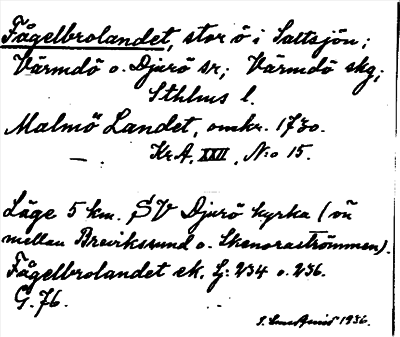 Fågelbrolandet, stor ö i Saltsjön;
Värmdö o. Djurö sr; Värmdö skg;
Sthlms l.
Malmö Landet, omkr. 1730.
— . KrA, XXII, N:o 15.
Läge 5 km. SV Djurö kyrka (ön
mellan Breviksund o. Skenoraströmmen).
Fågelbrolandet ek. L: 234 o. 236.
G. 76.
1936.